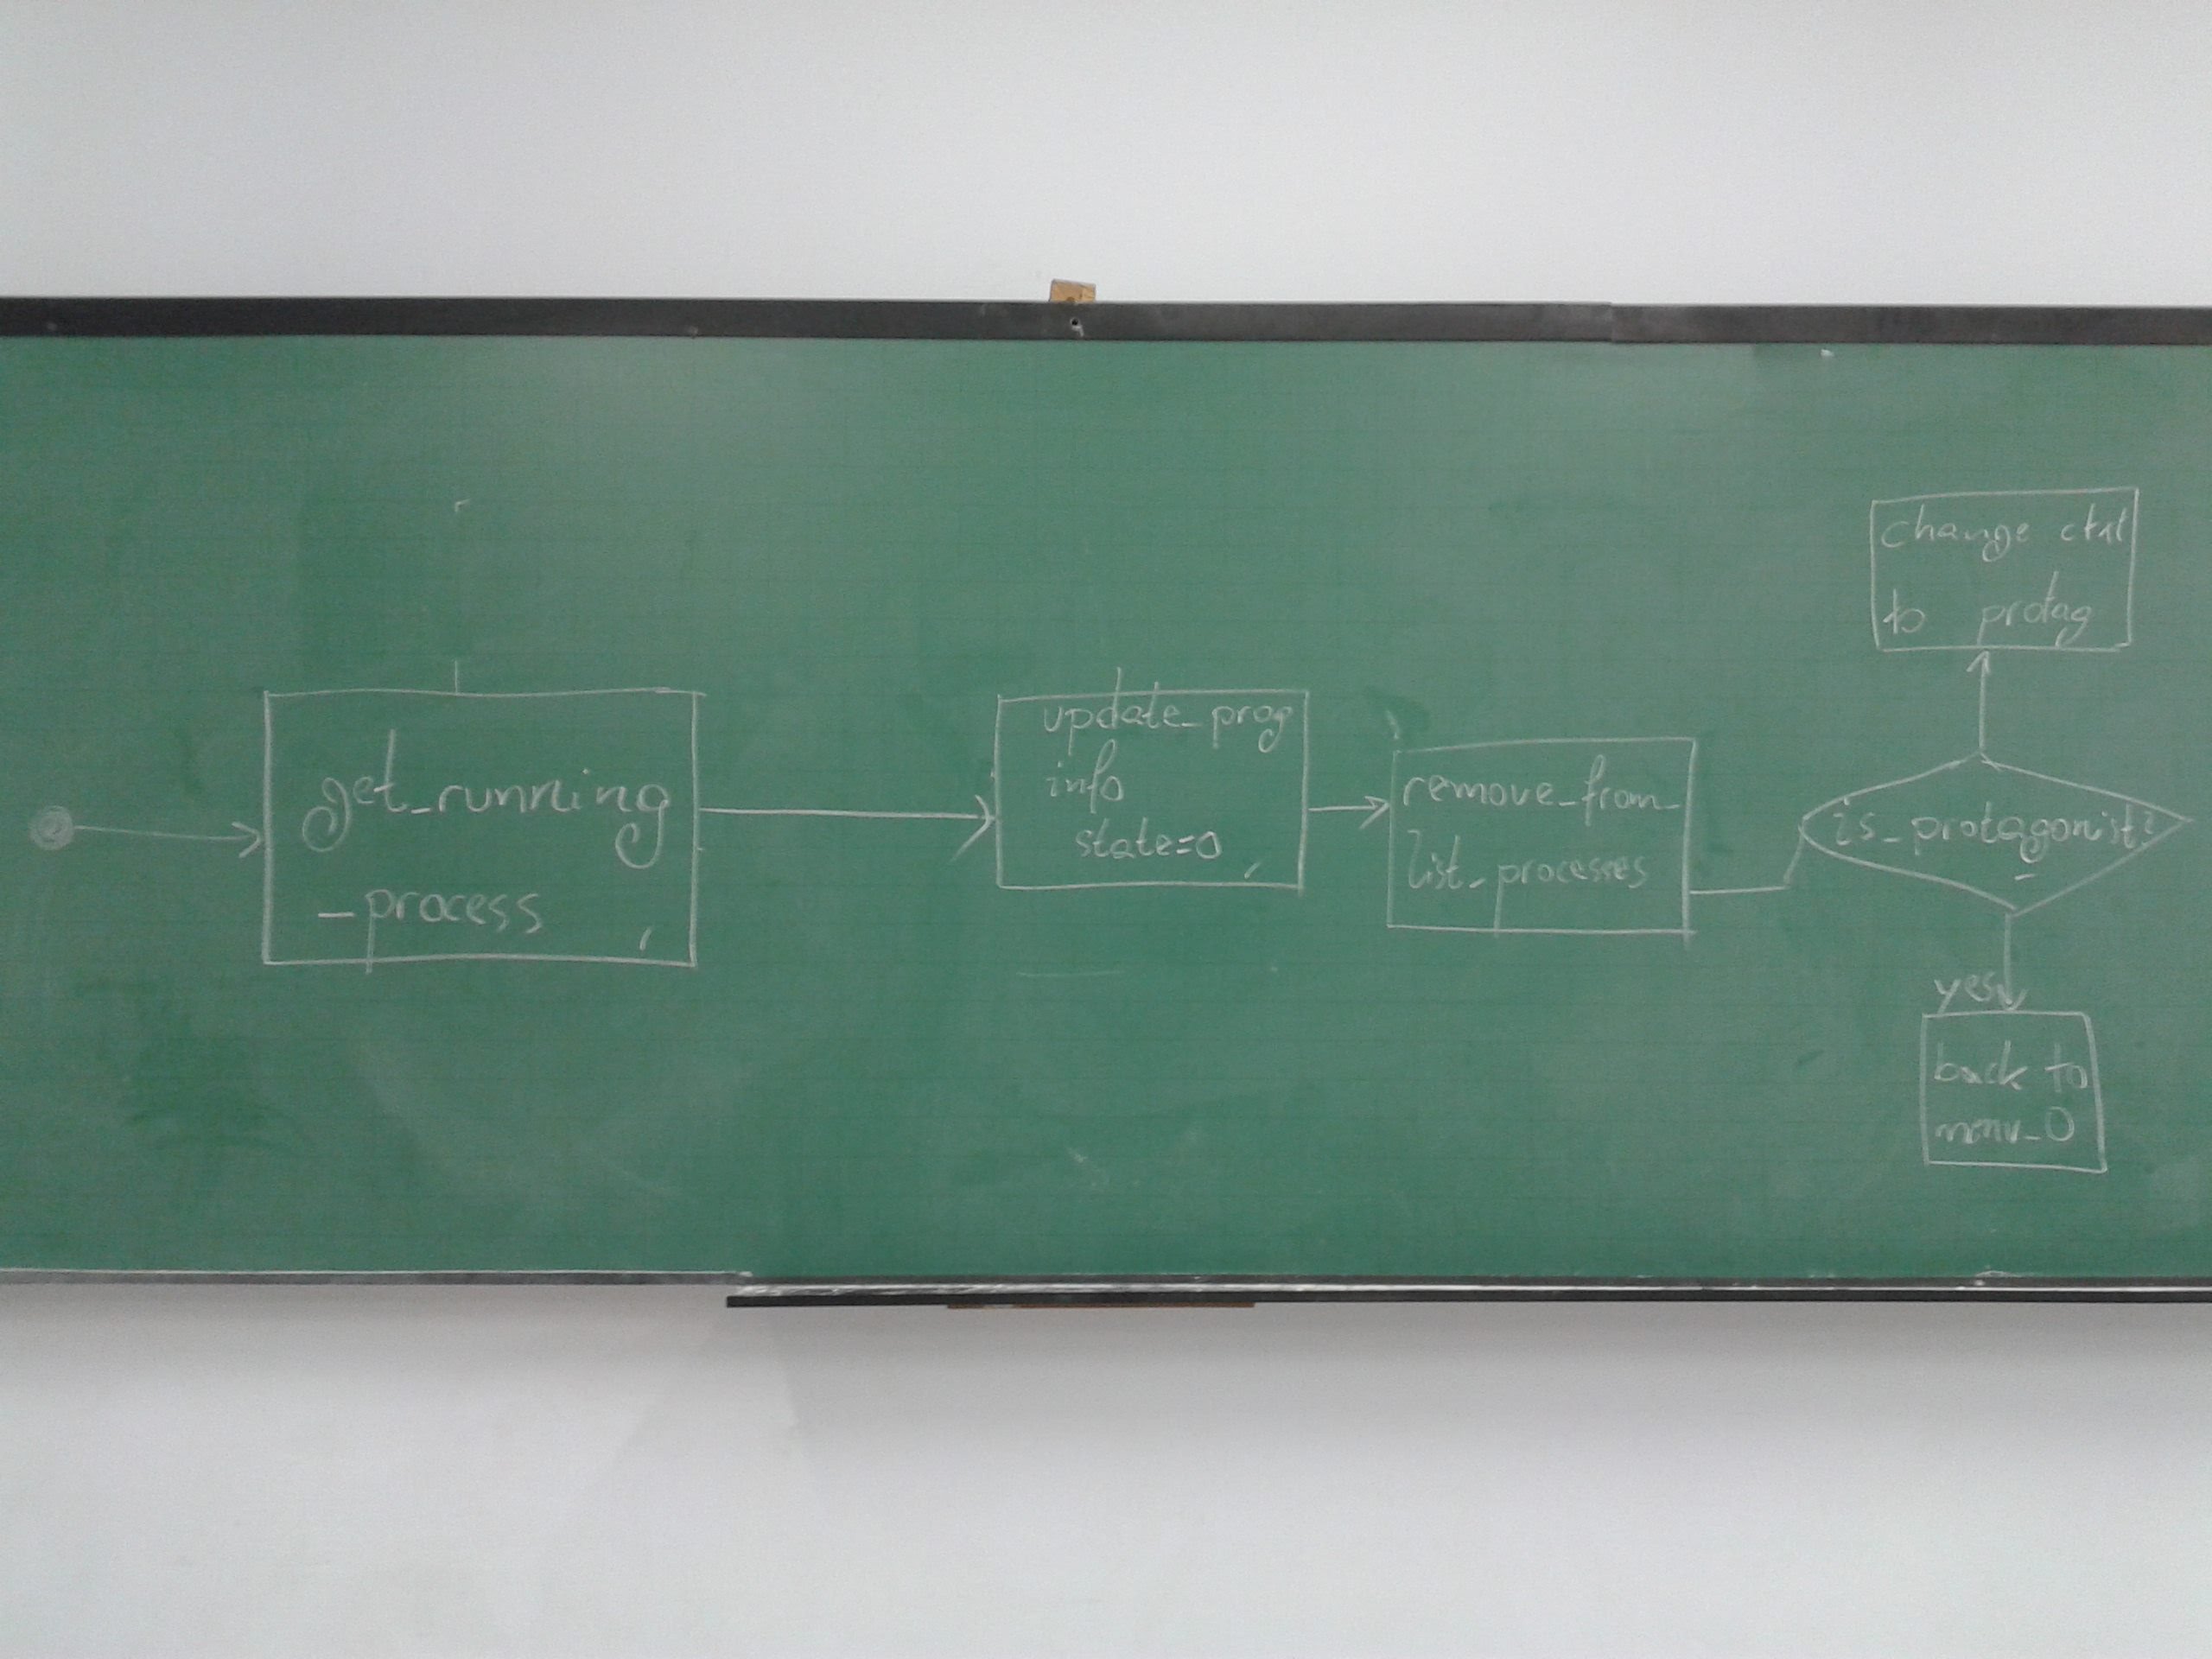 get_running
_process
update_prog
info
state=0
remove_from_
list_processes
is_protagonist?
change ctxt
to protag
yes
back to
menu_0